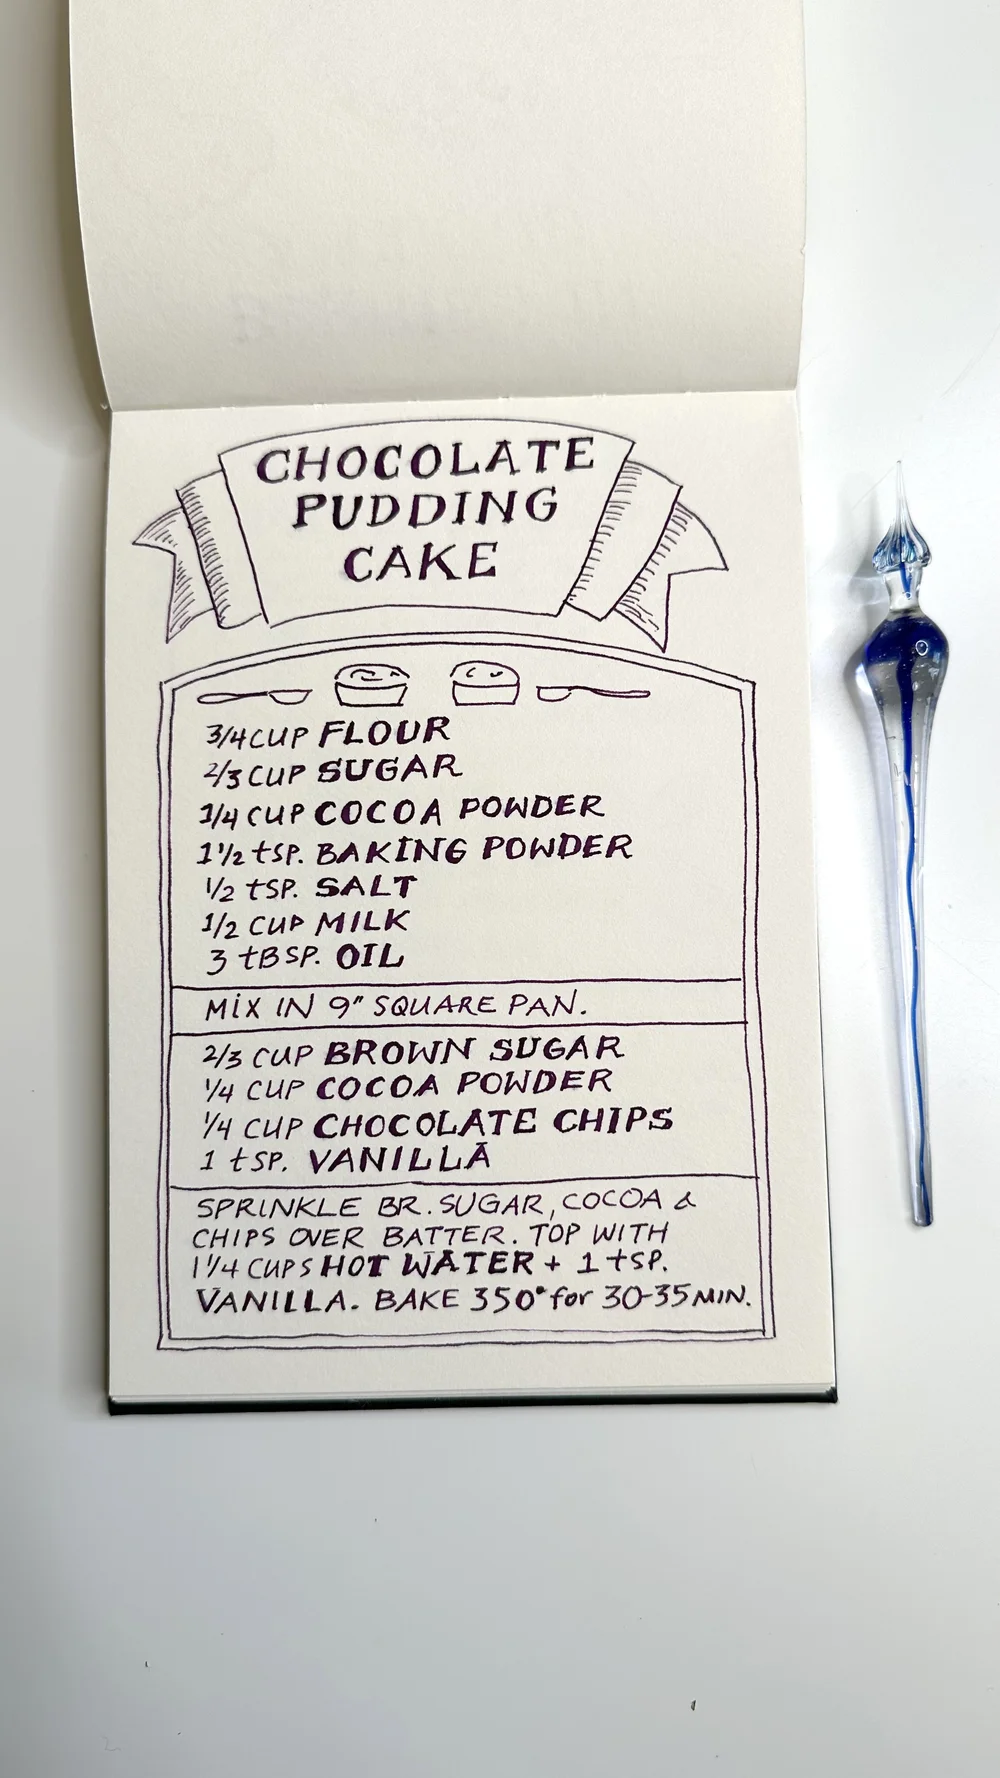 CHOCOLATE
PUDDING
CAKE
3/4 CUP FLOUR
2/3 CUP SUGAR
1/4 CUP COCOA POWDER
1 1/2 tSP. BAKING POWDER
1/2 tSP. SALT
1/2 CUP MILK
3 tBSP. OIL
MIX IN 9" SQUARE PAN.
2/3 CUP BROWN SUGAR
1/4 CUP COCOA POWDER
1/4 CUP CHOCOLATE CHIPS
1 tSP. VANILLA
SPRINKLE BR. SUGAR, COCOA &
CHIPS OVER BATTER. TOP WITH
1 1/4 CUPS HOT WATER + 1 tSP.
VANILLA. BAKE 350° for 30-35 MIN.